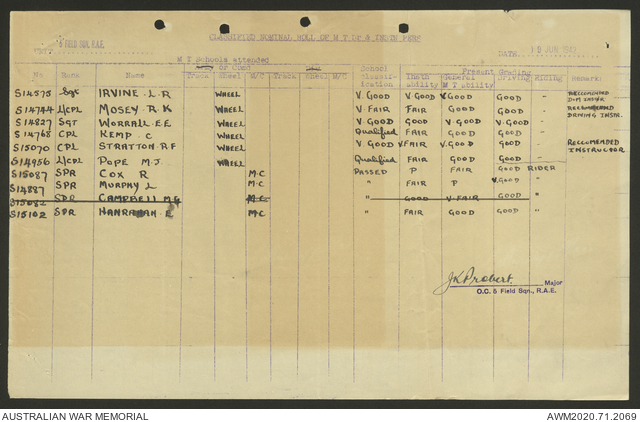 CLASSIFIED NOMINAL ROLL OF M T Dr & INSTR PERS
5 FIELD SQN, R.A.E.
DATE 10 JUN
M T Schools attended
or Cond
School Classification
Present Grading
No Rank Name Track Wheel M/C Track Wheel M/C Insth ability General M T ability Driving Riding Remark:
S14575 Sgt IRVINE. L. R WHEEL V GOOD V GOOD V GOOD GOOD - RECCOMENDED D+M INSTR
S14744 L/CPL MOSEY. R K WHEEL V FAIR FAIR GOOD GOOD - RECOMMENDED DRIVING INSTR.
S14827 SGT WORRALL. E. E WHEEL V GOOD GOOD V. GOOD V. GOOD -
S14768 CPL KEMP. C WHEEL Qualified FAIR GOOD GOOD -
S15070 CPL STRATTON. R. F WHEEL V GOOD V FAIR V. GOOD GOOD - RECCOMENDED INSTRUCTOR
S14956 L/CPL POPE M. J. WHEEL Qualified FAIR GOOD GOOD -
S15087 SPR COX R M.C PASSED P FAIR GOOD RIDER
S14887 SPR MURPHY L M.C " FAIR P V. GOOD "
S15082 SPR CAMPBELL M G M.C " GOOD V. FAIR GOOD "
S15102 SPR HANRAHAN E M.C " FAIR GOOD GOOD "
J K Probert. Major
O.C. 5 Field Sqn., R.A.E.
AUSTRALIAN WAR MEMORIAL AWM2020.71.2069